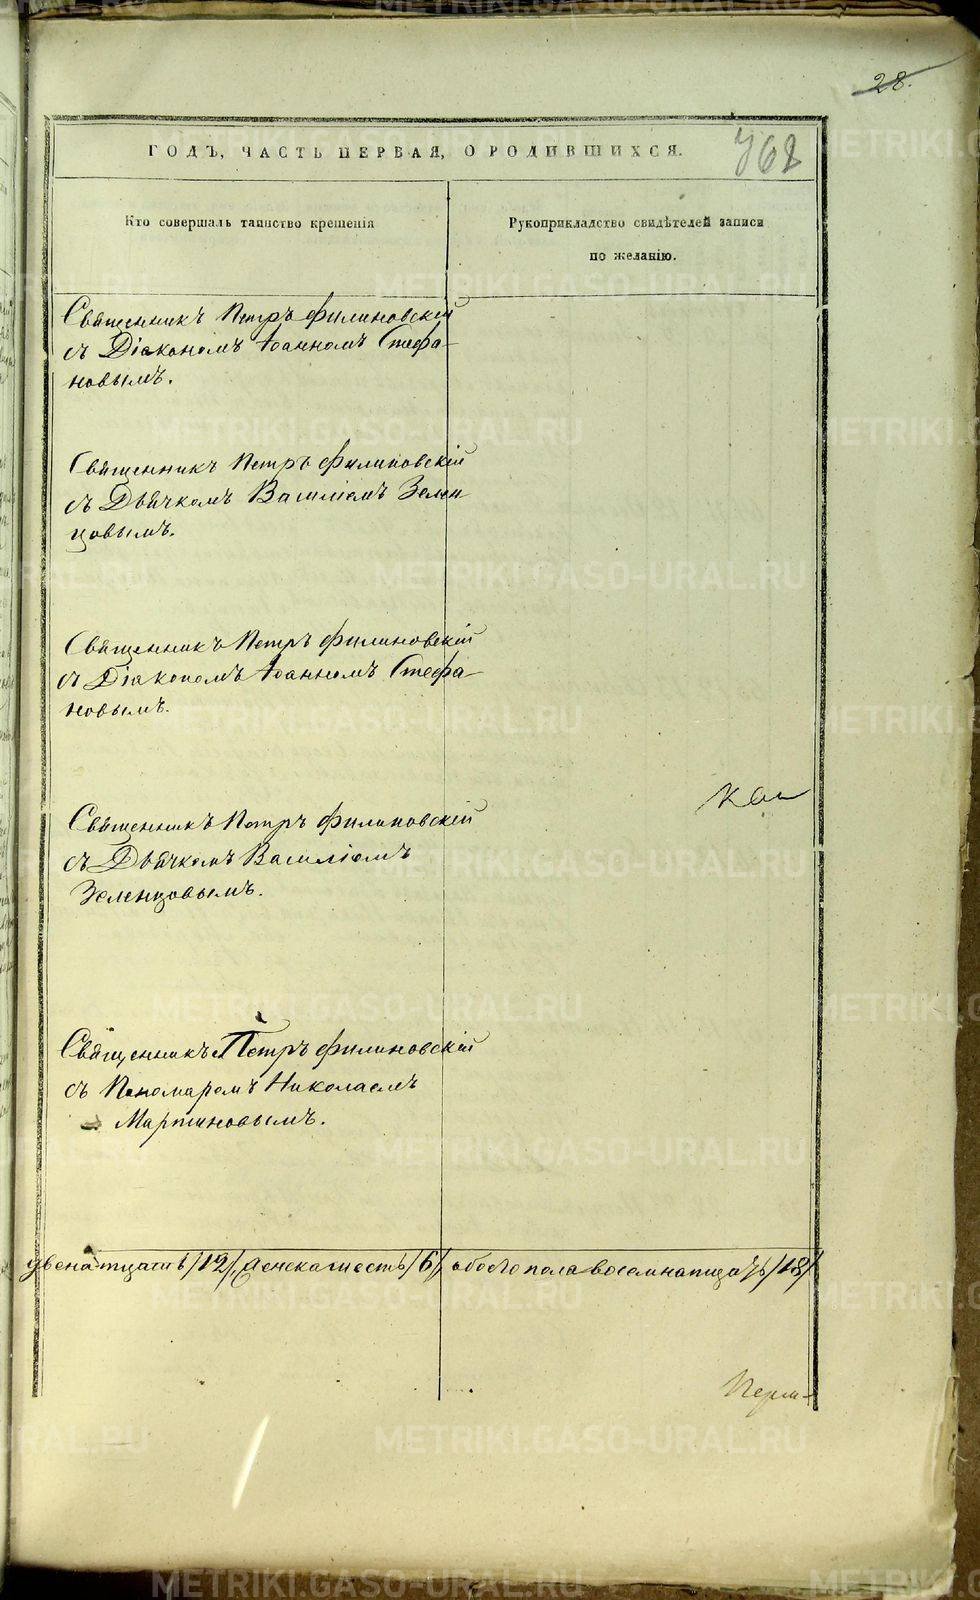 28.
ГОДЪ, ЧАСТЬ ПЕРВАЯ, О РОДИВШИХСЯ.
768
Кто совершалъ таинство крещенія
Рукоприкладство свидѣтелей записи
по желанію.
Священникъ Петръ Филиновскій
съ Діакономъ Іоанномъ Стефа-
новымъ.
Священникъ Петръ Филиновскій
съ Дьячкомъ Василіемъ Зелен
цовымъ.
Священникъ Петръ Филиновскій
съ Діакономъ Іоанномъ Стефа-
новымъ.
Священникъ Петръ Филиновскій
съ Дьячкомъ Василіемъ
Зеленцовымъ.
Священникъ Петръ Филиновскій
съ Пономаремъ Николаемъ
Мартиновымъ.
двенатцать /12/, женска шесть /6/ обоего пола восемнатцать /18/
METRIKI.GASO-URAL.RU